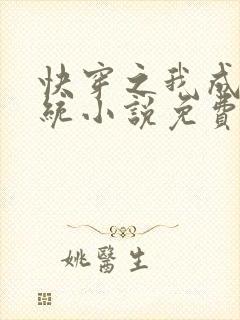 快穿之我成
統小說免費
姚醫生